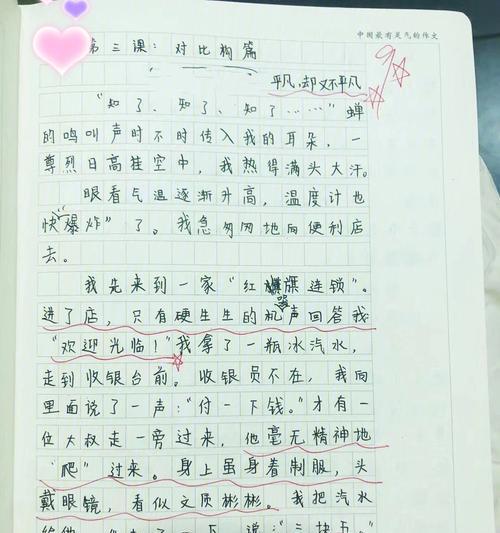 中国最有灵气的作文
第三课：对比构篇
平凡，却又不平凡
“知了、知了、知了……”蝉
的鸣叫声时不时传入我的耳朵，一
尊烈日高挂空中，我热得满头大汗。
眼看气温逐渐升高，温度计也
快“爆炸”了。我急匆匆地向便利店
去。
我先来到一家“红旗连锁”。
进了店，只有硬生生的机器声回答我
“欢迎光临！”我拿了一瓶冰汽水，
走到收银台前。收银员不在，我向
里面说了一声：“付一下钱。”才有一
位大叔走一旁过来，他毫无精神地
“爬”过来。身上虽身着制服，头
戴眼镜，看似文质彬彬。我把汽水
给他，
了一下，说：“三块五。”